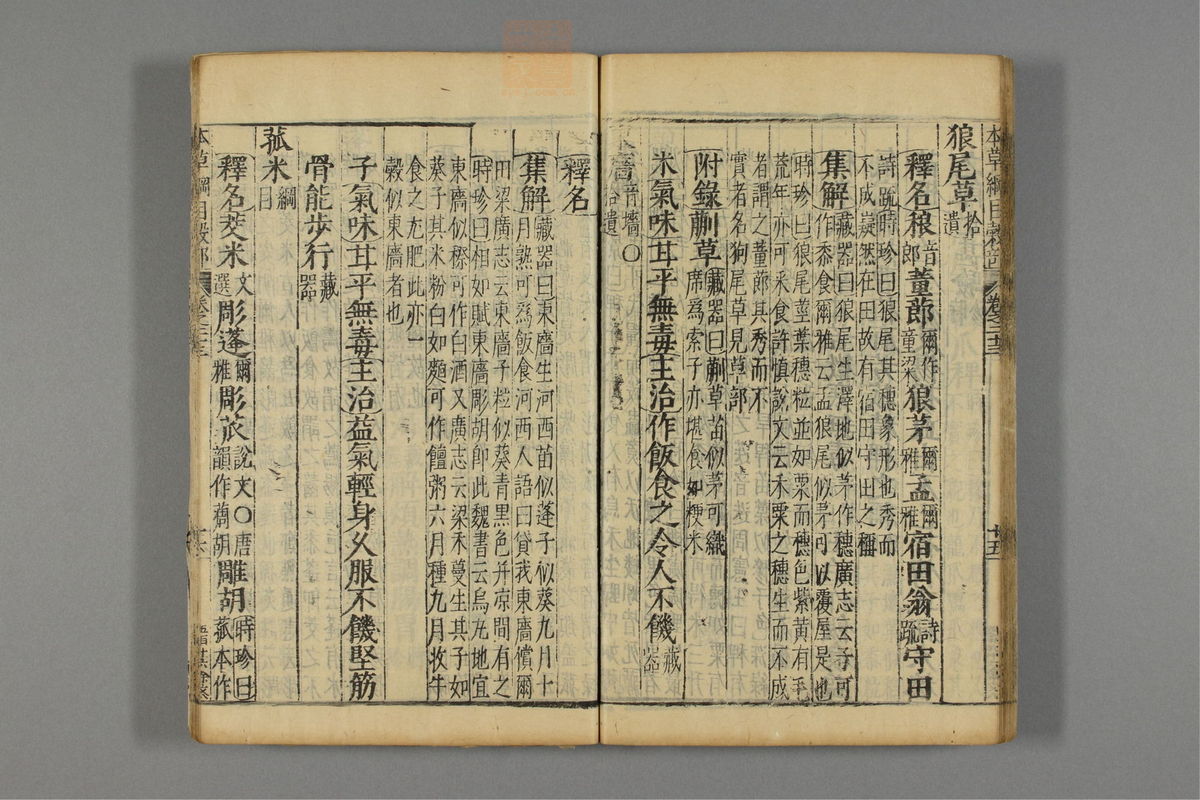 本草綱目穀部 卷二十三 十五
狼尾草拾遺
釋名稂音郎董蓈爾雅作童梁狼茅爾雅孟爾雅宿田翁詩疏守田
詩疏時珍曰狼尾其穗象形也秀而
不成嶷然在田故有宿田守田之稱
集解藏器曰狼尾生澤地似茅作穗廣志云子可
作黍食爾雅云孟狼尾似茅可以覆屋是也
時珍曰狼尾莖葉穗粒並如粟而穗色紫黃有毛
荒年亦可采食許慎說文云禾粟之穗生而不成
者謂之董蓈其秀而不
實者名狗尾草見草部
附錄蒯草藏器曰蒯草苗似茅可織
席爲索子亦堪食如粳米
米氣味甘平無毒主治作飯食之令人不饑藏器
薔音墻〇拾遺
釋名
集解藏器曰東薔生河西苗似蓬子似葵九月十
月熟可爲飯食河西人語曰貸我東薔償爾
田粱廣志云東薔子粒似葵青黑色并凉間有之
時珍曰相如賦東薔彫胡即此魏書云烏丸地宜
東薔似穄可作白酒又廣志云粱禾蔓生其子如
葵子其米粉白如麪可作饘粥六月種九月收牛
食之尤肥此亦一
穀似東薔者也
子氣味甘平無毒主治益氣輕身久服不饑堅筋
骨能步行藏器
菰米綱目
釋名茭米文選彫蓬爾雅彫苽說文〇唐韻作䕮胡雕胡時珍曰菰本作
本草綱目穀部 卷二十三